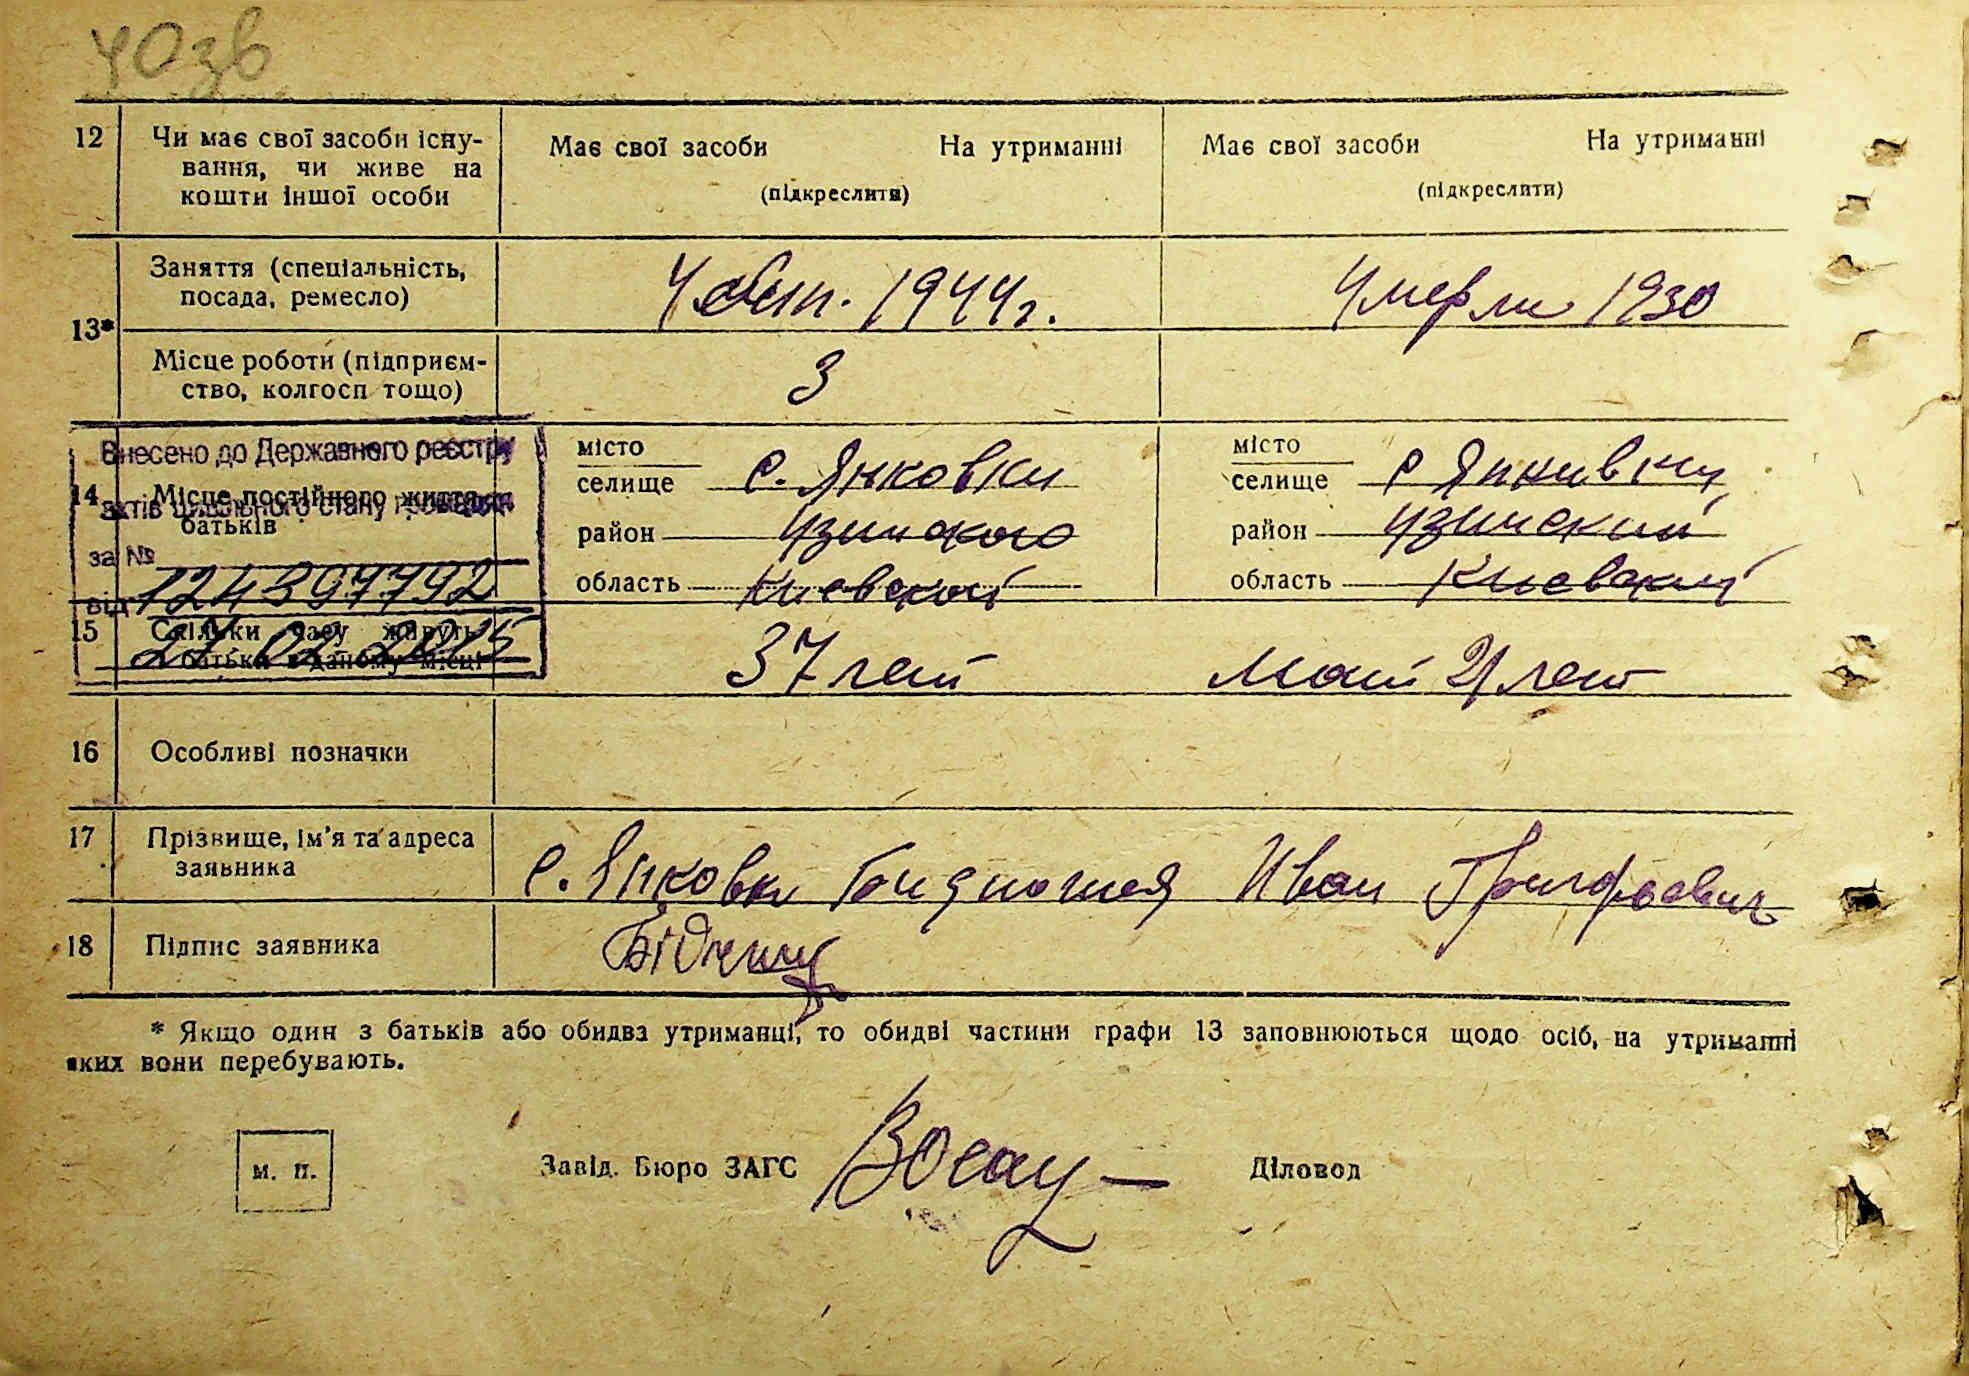 40зв
12 Чи має свої засоби існу-
вання, чи живе на
кошти іншої особи
Має свої засоби На утриманні
(підкреслити)
Має свої засоби На утриманні
(підкреслити)
13*
Заняття (спеціальність,
посада, ремесло)
1944г.
Умерли 1930
Місце роботи (підприєм-
ство, колгосп тощо)
3
Внесено до Державного реєстру
актів цивільного стану громадян
за № 124397792
від 27.02.2015
14 Місце постійного життя
батьків
місто
селище с. Янковки
район Узинского
область Киевской
місто
селище с Янкивки
район Узинский
область Киевский
15 Скільки часу живуть
батьки в даному місці
37 лет
21 лет
16 Особливі позначки
17 Прізвище, ім'я та адреса
заявника
с. Янковки Иван Григорьевич
18 Підпис заявника
* Якщо один з батьків або обидва утриманці, то обидві частини графи 13 заповнюються щодо осіб, на утриманні
яких вони перебувають.
м. п.
Завід. Бюро ЗАГС
Діловод